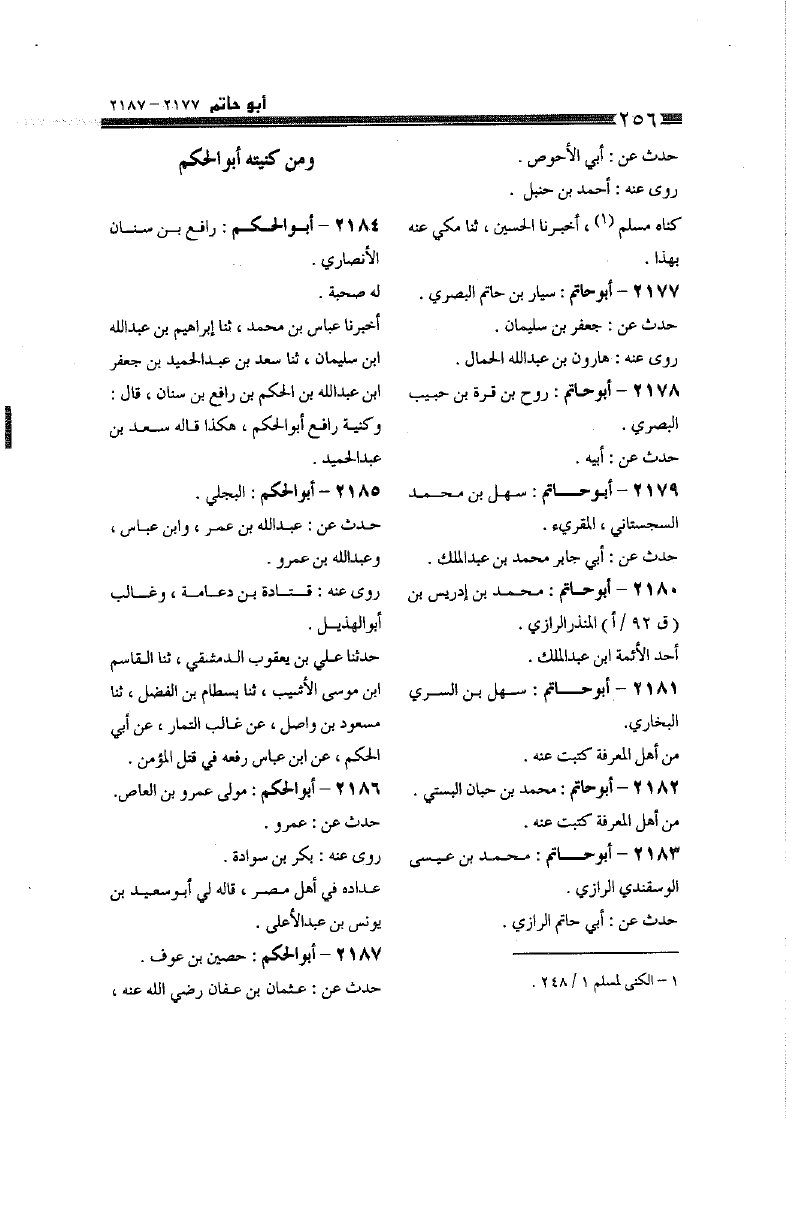 أبو حاتم ٢١٧٧ – ٢١٨٧
٢٥٦
حدث عن : أبي الأحوص .
روى عنه : أحمد بن حنبل .
كناه مسلم (١) ، أخبرنا الحسين ، ثنا مكي عنه
بهذا .
٢١٧٧ – أبو حاتم : سيار بن حاتم البصري .
حدث عن : جعفر بن سليمان .
روى عنه : هارون بن عبدالله الحمال .
٢١٧٨ – أبو حاتم : روح بن قرة بن حبيب
البصري .
حدث عن : أبيه .
٢١٧٩ – أبو حاتم : سهل بن محمد
السجستاني ، المقريء .
حدث عن : أبي جابر محمد بن عبدالملك .
٢١٨٠ – أبو حاتم : محمد بن إدريس بن
( ق ٩٢ / أ ) المنذر الرازي .
أحد الأئمة ابن عبدالملك .
٢١٨١ – أبو حاتم : سهل بن السري
البخاري.
من أهل المعرفة كتبت عنه .
٢١٨٢ – أبو حاتم : محمد بن حبان البستي .
من أهل المعرفة كتبت عنه .
٢١٨٣ – أبو حاتم : محمد بن عيسى
الوسقندي الرازي .
حدث عن : أبي حاتم الرازي .
١ – الكنى لمسلم ١ / ٢٤٨ .
ومن كنيته أبو الحكم
٢١٨٤ – أبو الحكم : رافع بن سنان
الأنصاري .
له صحبة .
أخبرنا عباس بن محمد ، ثنا إبراهيم بن عبدالله
ابن سليمان ، ثنا سعد بن عبدالحميد بن جعفر
ابن عبدالله بن الحكم بن رافع بن سنان ، قال :
وكنية رافع أبوالحكم ، هكذا قاله سعد بن
عبدالحميد .
٢١٨٥ – أبو الحكم : البجلي .
حدث عن : عبدالله بن عمر ، وابن عباس ،
وعبدالله بن عمرو .
روى عنه : قتادة بن دعامة ، وغالب
أبوالهذيل .
حدثنا علي بن يعقوب الدمشقي ، ثنا القاسم
ابن موسى الأشيب ، ثنا بسطام بن الفضل ، ثنا
مسعود بن واصل ، عن غالب التمار ، عن أبي
الحكم ، عن ابن عباس رفعه في قتل المؤمن .
٢١٨٦ – أبو الحكم : مولى عمرو بن العاص.
حدث عن : عمرو .
روى عنه : بكر بن سوادة .
عداده في أهل مصر ، قاله لي أبو سعيد بن
يونس بن عبدالأعلى .
٢١٨٧ – أبو الحكم : حصين بن عوف .
حدث عن : عثمان بن عفان رضي الله عنه ،